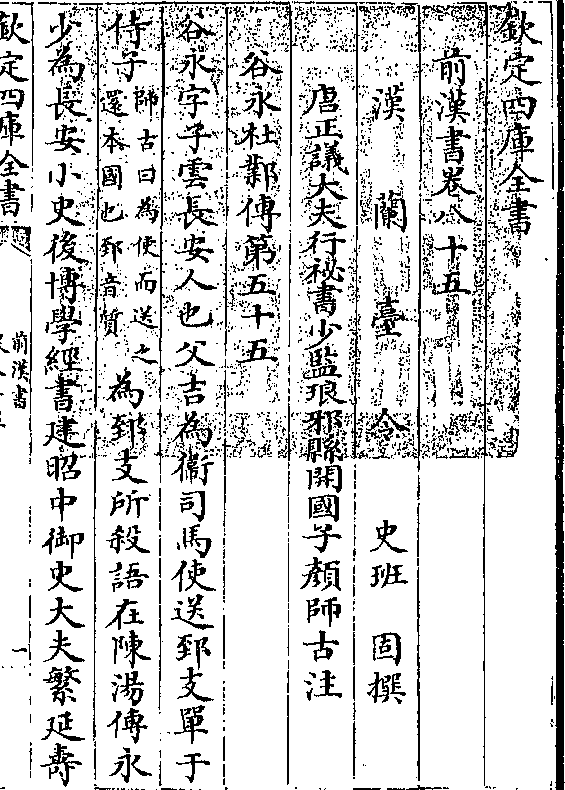 欽定四庫全書
前漢書卷八十五
漢蘭臺令史班固撰
唐正議大夫行祕書少監琅邪縣開國子顔師古注
谷永杜鄴傳第五十五
谷永字子雲長安人也父吉為衞司馬使送郅支單于
侍子
師古曰為使而送之
還本國也郅音質
為郅支所殺語在陳湯傳永
少為長安小史後博學經書建昭中御史大夫繁延壽
欽定四庫全書
前漢書
一